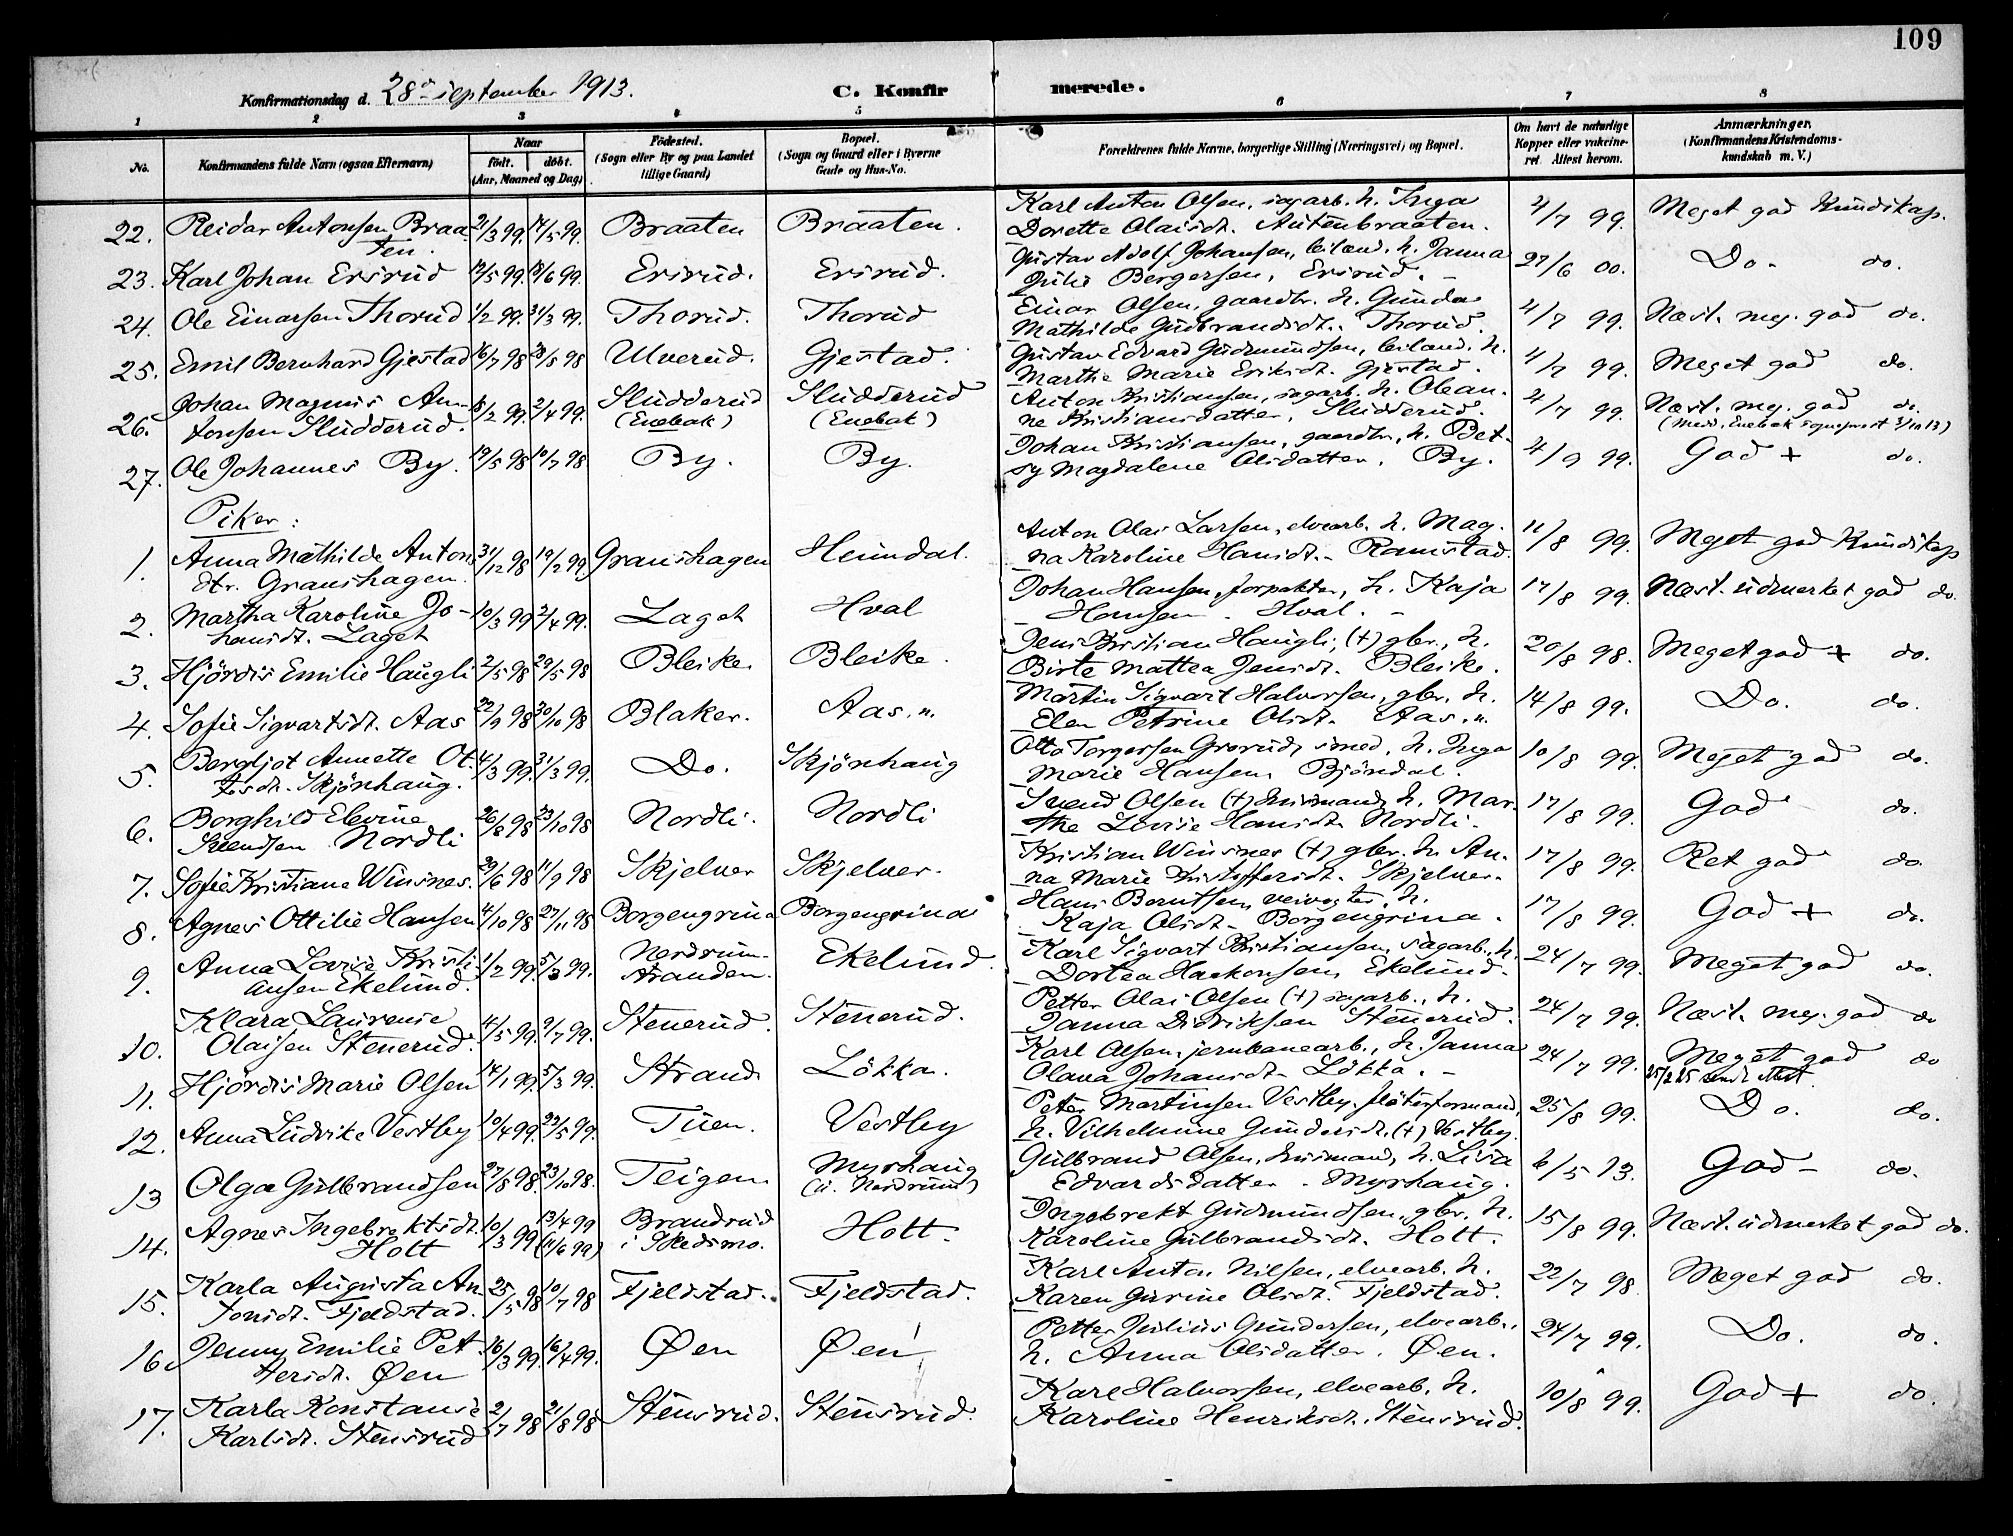 109
Konfirmationsdag d. 28de september 1913. C. Konfirmerede.
1 2 3 4 5 6 7 8
No. Konfirmandens fulde Navn (ogsaa Efternavn) Naar født. døbt. (Aar, Maaned og Dag) Fødested. (Sogn eller By og paa Landet tillige Gaard) Bopæl. (Sogn og Gaard eller i Byerne Gade og Hus-No. Forældrenes fulde Navne, borgerlige Stilling (Næringsvei) og Bopæl. Om havt de naturlige Kopper eller vakcineret. Attest herom. Anmærkninger. (Konfirmandens Kristendomskundskab m. V.)
22. Reidar Antonsen Braa- 21/3 99. 14/5 99. Braaten Braaten. Karl Anton Olsen, sagarb. h. Inga 4/7 99. Meget god Kundskap.
ten. Dorette Olaisdt. Autenbraaten.
23. Karl Johan Ersrud 12/5 99. 18/6 99. Ersrud. Ersrud. Gustav Adolf Johansen, leilænd. h. Janna 27/6 00. Do. do.
Julie Bergersen, Ersrud.
24. Ole Einarsen Thorud 1/2 99. 31/3 99. Thorud. Thorud Einar Olsen, gaardbr. h. Gunda 4/7 99. Næst. meg. god do.
Mathilde Gudbrandsdt. Thorud.
25. Emil Bernhard Gjestad 16/7 98 28/5 98 Ulverud. Gjestad. Gustav Edvard Gudmundsen, leilænd. h. 4/7 99. Meget god do.
Marthe Marie Eriksdt. Gjestad.
26. Johan Magnus An- 18/2 99. 2/4 99. Sludderud Sludderud Anton Kristiansen, sagarb. h. Olean- 4/7 99. Næst. meg. god do.
tonsen Sludderud. (Enebak) (Enebak) ne Kristiansdatter, Sludderud. (Medd. Enebak sogneprest 3/10 13)
27. Ole Johannes By. 19/5 98 10/7 98 By. By. Johan Kristiansen, gaardbr., h. Bet- 4/9 99. God + do.
sy Magdalene Olsdatter. By.
Piker:
1. Anna Mathilde Antons 31/12 98 19/2 99 Granshagen Heimdal. Anton Olai Larsen, elvearb. h. Mag- 11/8 99. Meget god Kundskap
dtr. Granshagen. na Karoline Hansdt. Ramstad.
2. Martha Karoline Jo- 10/3 99 2/4 99. Laget Hval Johan Hansen, forpakter, h. Kaja 17/8 99. Næst. udmerket god do.
hansdt. Laget Hansen. Hval.
3. Hjördis Emilie Haugli 2/5 98 29/5 98 Bleike. Bleike. Jens Kristian Haugli, (+) gbr., h. 20/8 98. Meget god + do.
Birte Mattea Jensdt. Bleike.
4. Sofie Sigvartsdt. Aas 22/9 98 30/10 98 Blaker. Aas. n. Martin Sigvart Halvorsen, gbr. h. 14/8 99. Do. do.
Elen Petrine Olsdt. Aas. n.
5. Bergljot Annette Ot- 4/3 99. 31/3 99. Do. Skjönhaug Otto Torgersen Grorud, smed, h. Inga 10/8 99. Meget god do.
tosdt. Skjönhaug. Marie Hansen, Bjöndal.
6. Borghild Elevine 26/8 98 23/10 98 Nordli. Nordli Svend Olsen (+) husmand, h. Mar- 17/8 99. God do.
Svendsen Nordli the Lovise Hansdt. Nordli.
7. Sofie Kristiane Winsnes. 29/6 98 11/9 98 Skjelver Skjelver. Kristian Winsnes (+) gbr. h. An- 17/8 99. Ret god do.
na Marie Kristoffersdt. Skjelver.
8. Agnes Ottilie Hansen 4/10 98 27/11 98 Borgengrina Borgengrina Hans Berntsen, veivogter, h. 17/8 99. God + do.
Kaja Olsdt. Borgengrina.
9. Anna Lovise Kristi- 1/2 99. 5/3 99. Nordrum- Ekelund. Karl Sigvart Kristiansen, sagarb., h. 24/7 99. Meget god do.
ansen Ekelund. stranden. Dortea Haakonsen, Ekelund.
10. Klara Laurense 4/5 99. 9/7 99. Stenerud. Stenerud. Petter Olai Olsen (+) sagarb., h. 24/7 99. Næst. meg. god do
Olaisen Stenerud. Janna Didriksen Stenerud.
11. Hjördis Marie Olsen 14/1 99. 5/3 99. Strand Lökka. Karl Olsen, jernbanearb., h. Janna 24/7 99. Meget god do
Olava Johansdt. Lökka. 25/2 25 sendt attest.
12. Anna Ludvika Vestby 10/4 99. 23/5 99. Tuen. Vestby Peter Martinsen Vestby, fløterformand, 25/8 99. Do. do.
h. Vilhelmine Gundersdt. (+) Vestby.
13 Olga Gulbrandsen 27/8 98. 23/10 98. Teigen. Myrhaug Gulbrand Olsen, husmand, h. Lisa 6/5 13. God - do.
(u. Nordrum) Edvardsdatter. Myrhaug.
14. Agnes Ingebrektsdt. 10/3 99 13/4 99 Brandrud Holt. Ingebrekt Gudmundsen, gbr. h. 15/8 99. Næst. udmerket god do.
Holt (11/6 99) i Skedsmo. Karoline Gulbrandsdt. Holt.
15. Karla Augusta An- 25/5 98 10/7 98 Fjeldstad. Fjeldstad. Karl Anton Nilsen, elvearb. h. 22/7 98 Meget god do.
tonsdt. Fjeldstad. Karen Gurine Olsdt. Fjeldstad.
16 Jenny Emilie Pet- 16/3 99. 16/4 99. Øen Øen Petter Julius Gundersen, elvearb., 24/7 99. Do. do.
tersdt. Øen h. Anna Olsdatter. Øen.
17. Karla Konstanse 2/7 98 21/8 98 Stensrud. Stensrud. Karl Halvorsen, elvearb. h. 10/8 99. God + do.
Karlsdt. Stensrud Karoline Henriksdt. Stensrud.